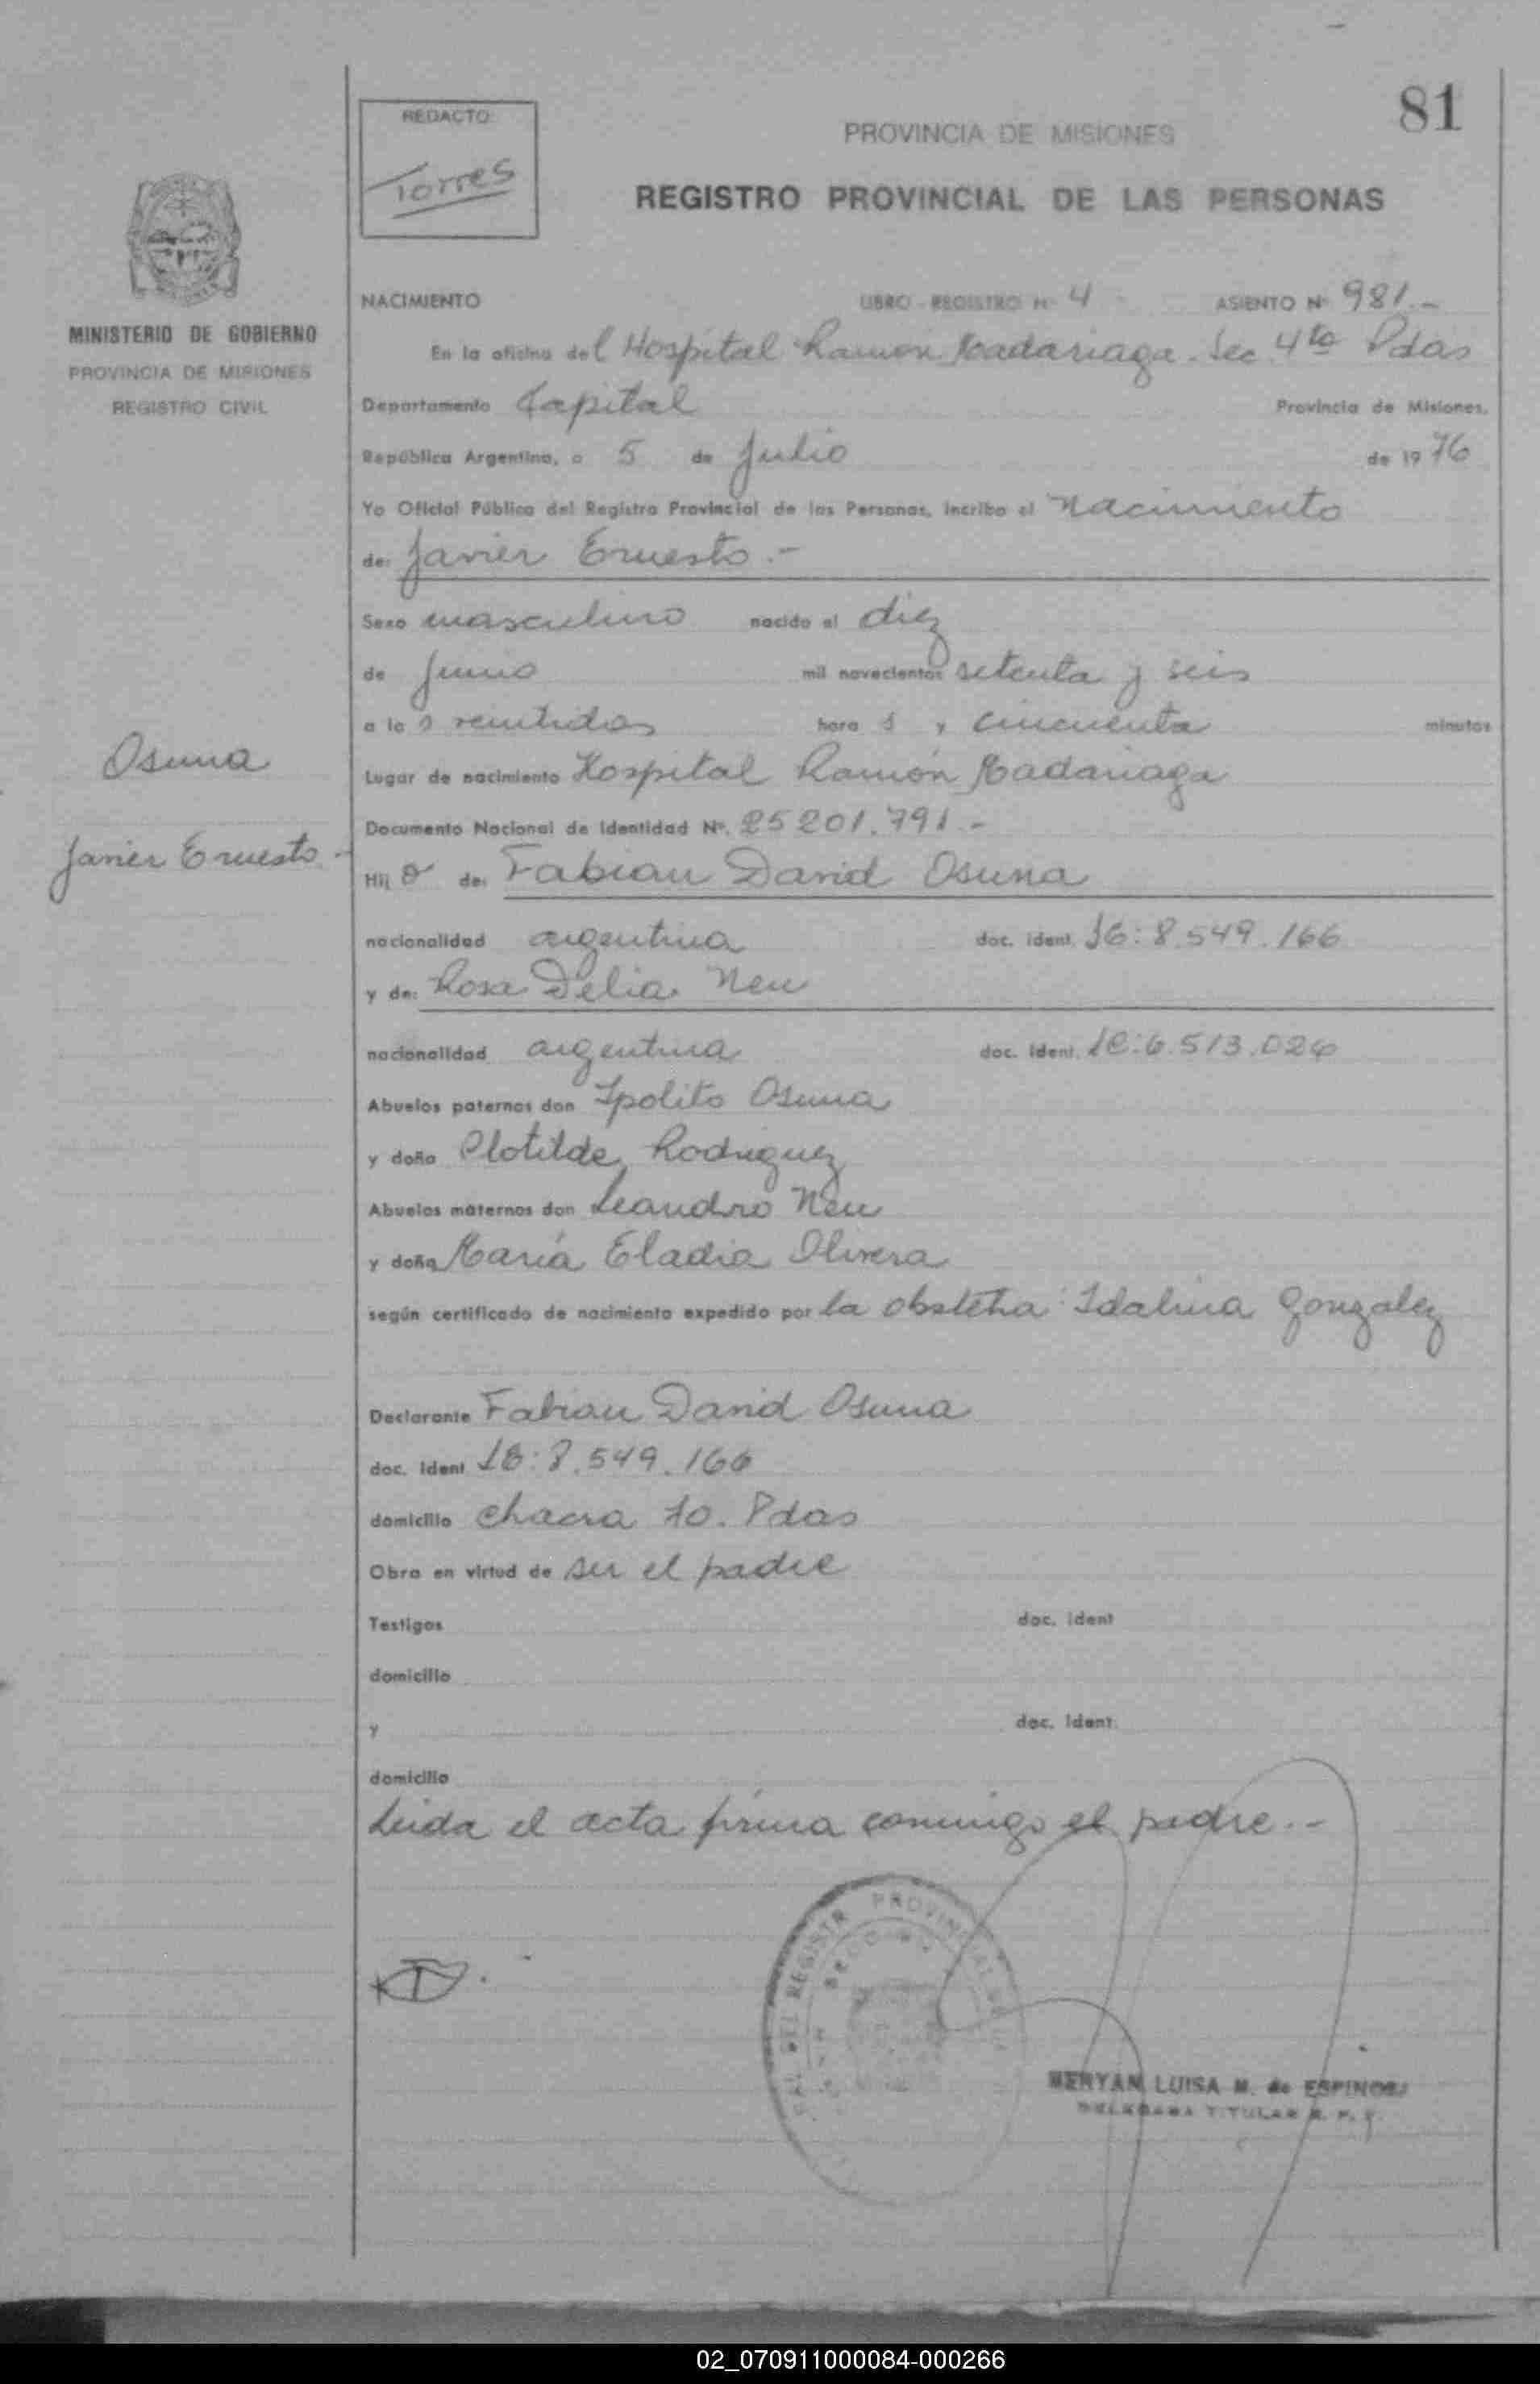 81
REDACTO
Torres
PROVINCIA DE MISIONES
REGISTRO PROVINCIAL DE LAS PERSONAS
MINISTERIO DE GOBIERNO
PROVINCIA DE MISIONES
REGISTRO CIVIL
NACIMIENTO LIBRO - REGISTRO Nº 4 ASIENTO Nº 981.-
En la oficina del Hospital Ramón Madariaga. Sec 4ta Pdas
Departamento Capital Provincia de Misiones.
República Argentina, a 5 de Julio de 1976
Yo Oficial Público del Registro Provincial de las Personas, incribo el nacimiento
de: Javier Ernesto.-
Sexo masculino nacido el diez
de Junio mil novecientos setenta y seis
a las veintidos horas y cincuenta minutos
Osuna
Javier Ernesto.-
Lugar de nacimiento Hospital Ramón Madariaga
Documento Nacional de Identidad Nº. 25201.791.-
Hijo de: Fabian David Osuna
nacionalidad argentina doc. ident. 8.549.166
y de: Rosa Delia Neu
nacionalidad argentina doc. ident. 6.513.026
Abuelos paternos don Ipolito Osuna
y doña Clotilde Rodriguez
Abuelos maternos don Leandro Neu
y doña María Eladia Olivera
según certificado de nacimiento expedido por la obstetra: Idalina Gonzalez
Declarante Fabian David Osuna
doc. ident 8.549.166
domicilio chacra 10. Pdas
Obra en virtud de ser el padre
Testigos doc. ident
domicilio
y doc. ident.
domicilio
Leida el acta firma conmigo el padre.-
MERYAN LUISA M. de ESPINOSA
DELEGADA TITULAR R. P. P.
02_070911000084-000266